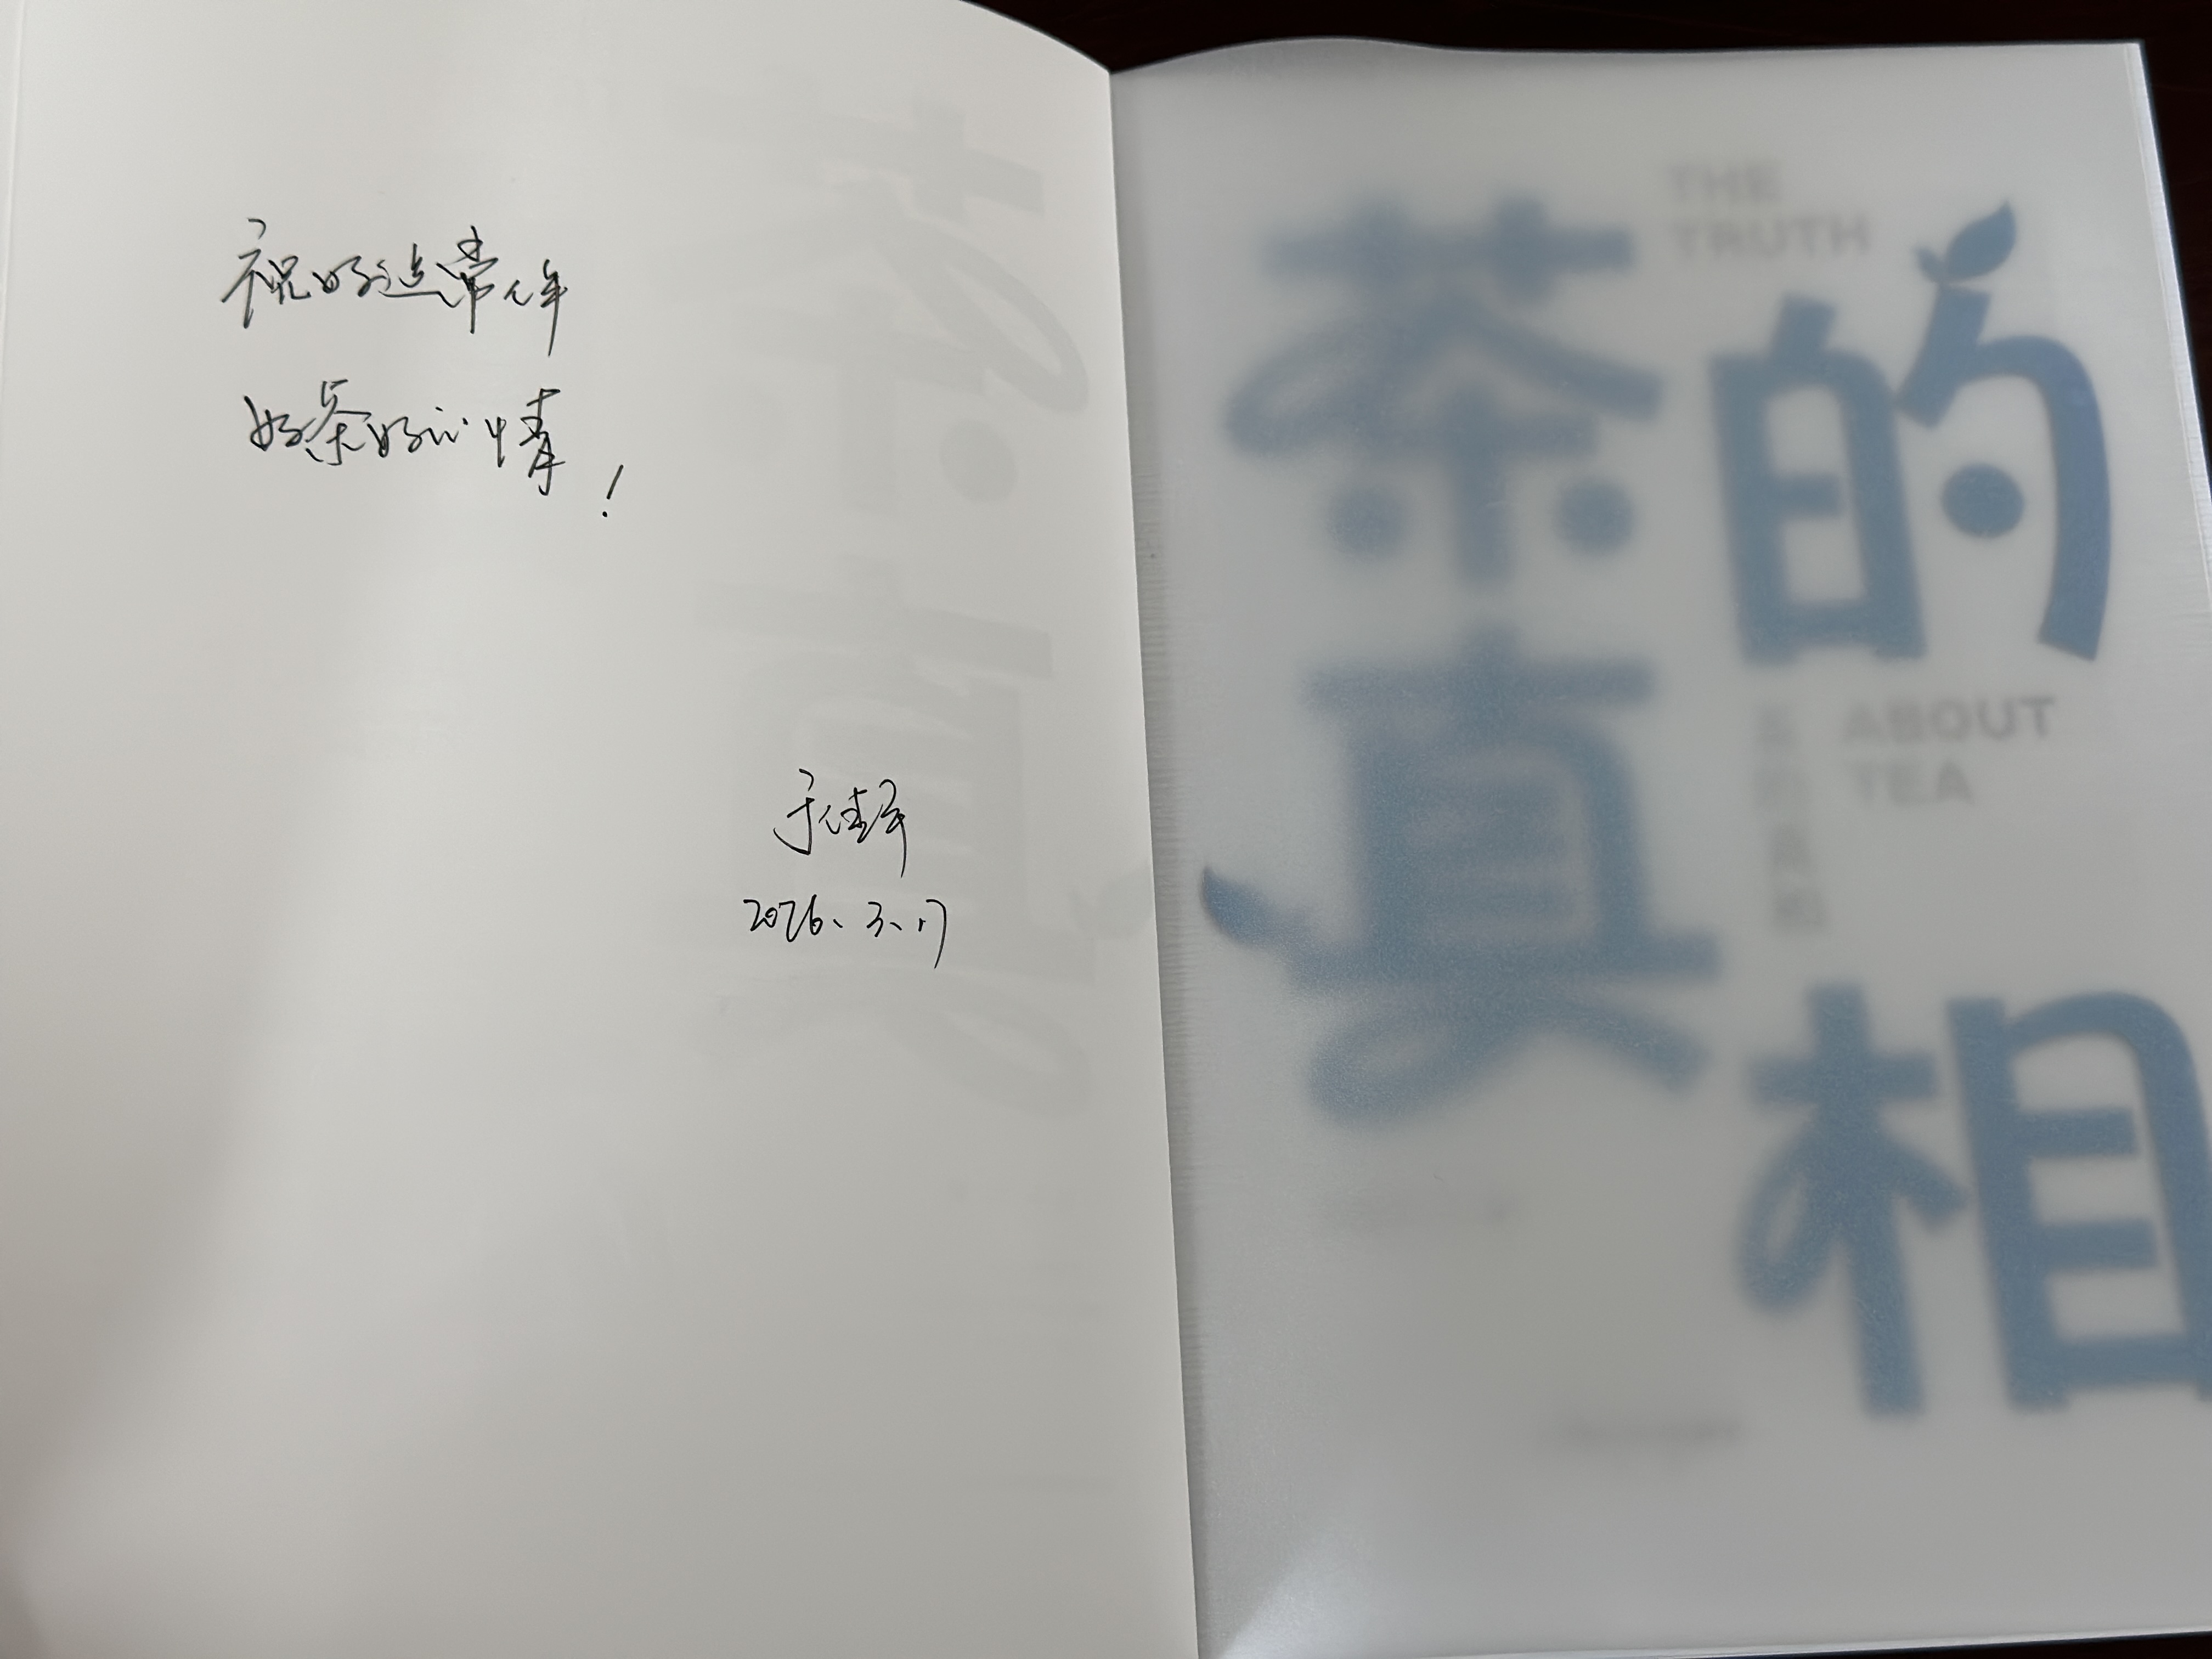 祝好运常伴
好茶好心情！
2026.3.17
THE
TRUTH
茶的
ABOUT
TEA
真相